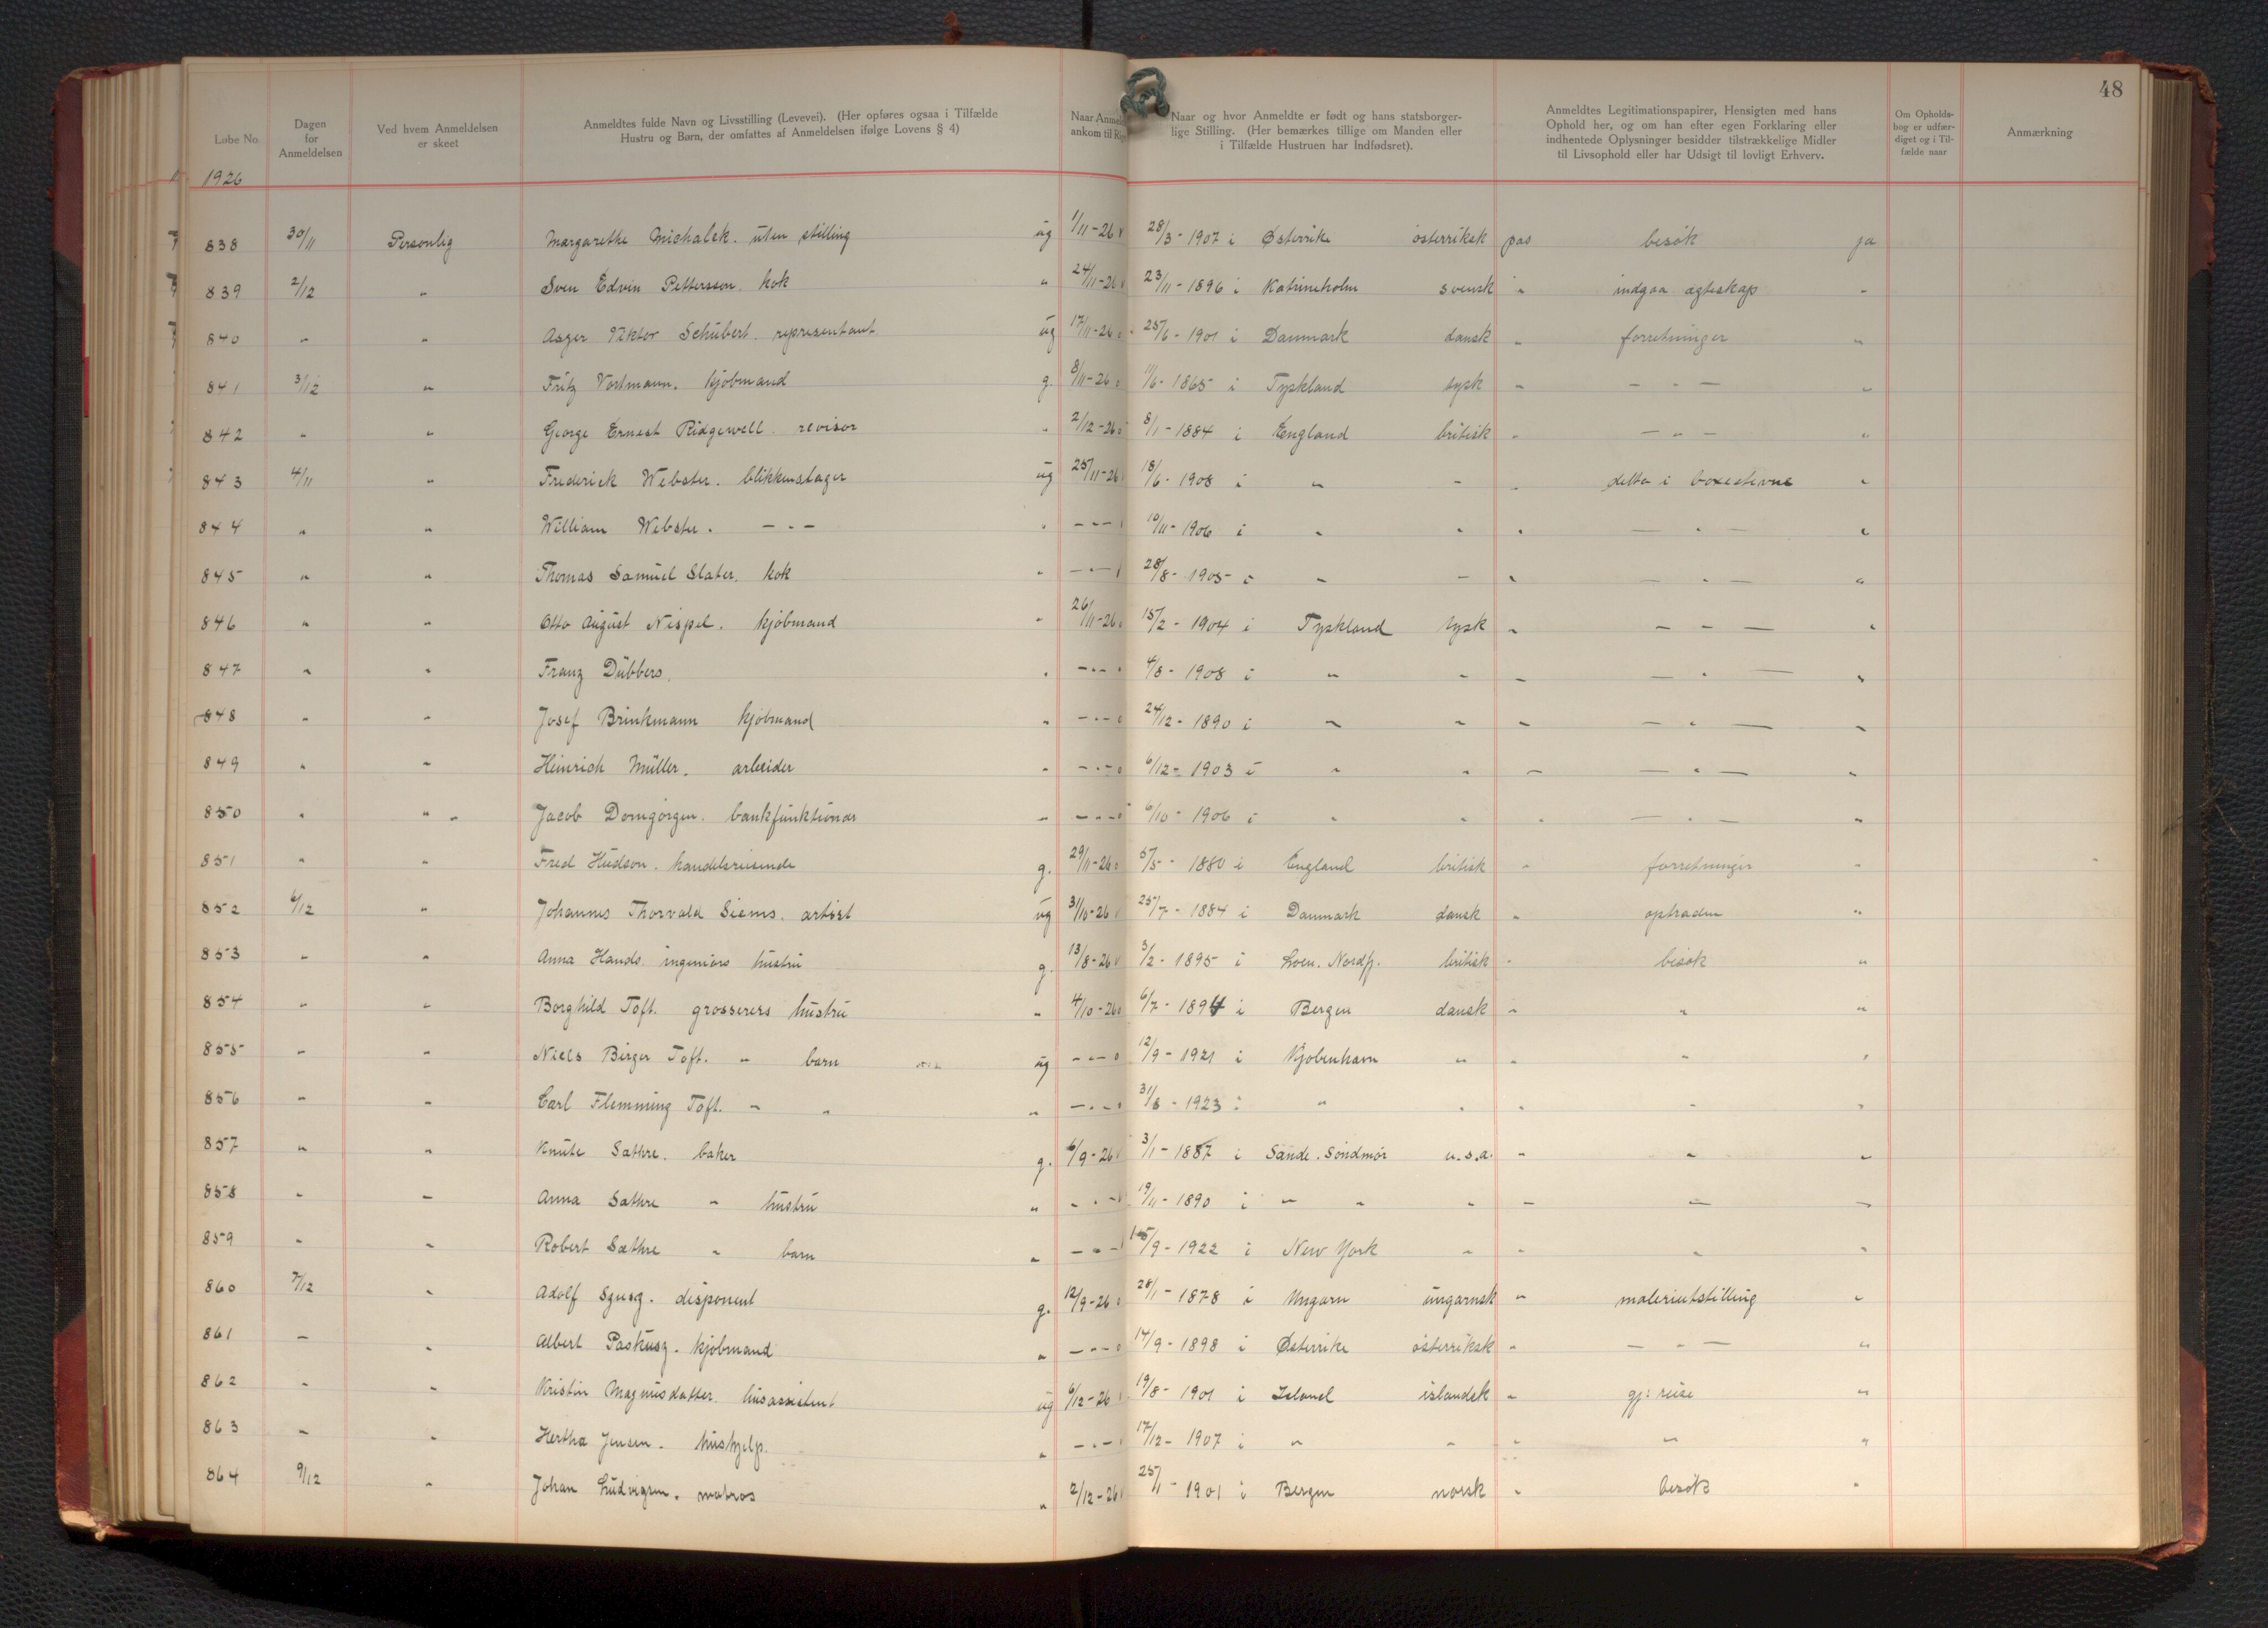 48
Løbe No. Dagen for Anmeldelsen Ved hvem Anmeldelsen er skeet Anmeldtes fulde Navn og Livsstilling (Levevei). (Her opføres ogsaa i Tilfælde Hustru og Børn, der omfattes af Anmeldelsen ifølge Lovens § 4) Naar Anmeldte ankom til Riget Naar og hvor Anmeldte er født og hans statsborgerlige Stilling. (Her bemærkes tillige om Manden eller i Tilfælde Hustruen har Indfødsret). Anmeldtes Legitimationspapirer, Hensigten med hans Ophold her, og om han efter egen Forklaring eller indhentede Oplysninger besidder tilstrækkelige Midler til Livsophold eller har Udsigt til lovligt Erhverv. Om Opholdsbog er udfærdiget og i Tilfælde naar Anmærkning
1926
838 30/11 Personlig Margarethe Michalek. uten stilling ug 1/11-26 28/3-1907 i Østerrike østerriksk pas besøk ja
839 2/12 " Sven Edvin Pettersson. kok " 24/11-26 23/11-1896 i Katrineholm svensk " indgaa ægteskap "
840 " " Asger Viktor Schubert. representant ug 17/11-26 25/6-1901 i Danmark dansk " forretninger "
841 3/12 " Fritz Vortmann. kjøbmand g. 8/11-26 11/6-1865 i Tyskland tysk " — " — "
842 " " George Ernest Ridgewell. revisor " 2/12-26 8/1-1884 i England britisk " — " — "
843 4/11 " Frederick Webster. blikkenslager ug 25/11-26 18/6-1908 i " " " delta i boxestevne "
844 " " William Webster. — " — " — " — 10/11-1906 i " " " — " — "
845 " " Thomas Samuel Slater. kok " — " — 28/8-1905 i " " " — " — "
846 " " Otto August Nispel. kjøbmand " 26/11-26 15/2-1904 i Tyskland tysk " — " — "
847 " " Franz Dübbers. " — " — 4/8-1908 i " " " — " — "
848 " " Josef Brinkmann kjøbmand " — " — 24/12-1890 i " " " — " — "
849 " " Heinrich Müller. arbeider " — " — 6/12-1903 i " " " — " — "
850 " " " Jacob Domgörgen. bankfunktionær " — " — 6/10-1906 i " " " — " — "
851 " " Fred Hudson. handelsreisende g. 29/11-26 5/5-1880 i England britisk " forretninger "
852 6/12 " Johannes Thorvald Siems. artist ug 31/10-26 25/7-1884 i Danmark dansk " optræden "
853 " " Anna Hands. ingeniørs hustru g. 13/8-26 3/2-1895 i Loen. Nordfj. britisk " besøk "
854 " " Borghild Toft. grosserers hustru " 4/10-26 6/7-1894 i Bergen dansk " " "
855 " " Niels Birger Toft. " barn ug — " — 12/9-1921 i Kjøbenhavn " " " "
856 " " Carl Flemming Toft. " " " — " — 31/8-1923 i " " " " "
857 " " Knute Sathre. baker g. 6/9-26 3/1-1887 i Sande. Søndmør u.s.a. " " "
858 " " Anna Sathre " hustru " — " — 19/11-1890 i " " " " " "
859 " " Robert Sathre " barn " — " — 15/9-1922 i New York " " " "
860 7/12 " Adolf Szusz. disponent g. 12/9-26 28/1-1878 i Ungarn ungarnsk " maleriutstilling "
861 " " Albert Paskusz. kjøbmand " — " — 14/9-1898 i Østerrike østerriksk " — " — "
862 " " Kristin Magnusdatter. husassistent ug 6/12-26 19/8-1901 i Island islandsk " gj: reise "
863 " " Hertha Jensen. hushjelp. " — " — 17/12-1907 i " " " " "
864 9/12 " Johan Ludvigsen. matros " 2/12-26 25/1-1901 i Bergen norsk " besøk "